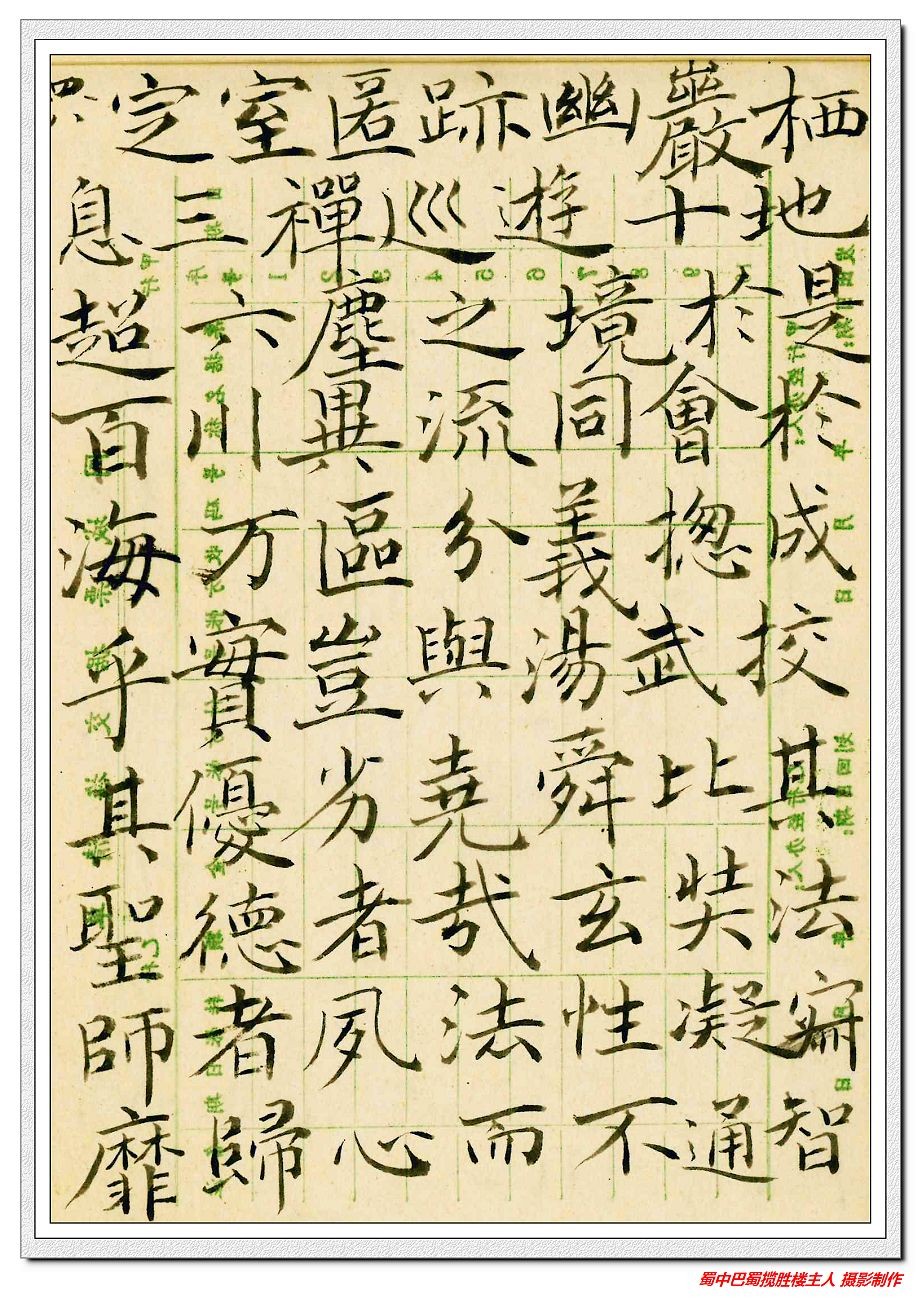 定室匿跡幽巖栖
息三禪巡遊十地
超六塵之境於是
百川異流同會於
海万區分義揔成
乎實豈與湯武校
其優劣堯舜比其
聖德者哉玄奘法
師者夙法性凝寂
靡歸心而不通智
蜀中巴蜀揽胜楼主人 摄影制作